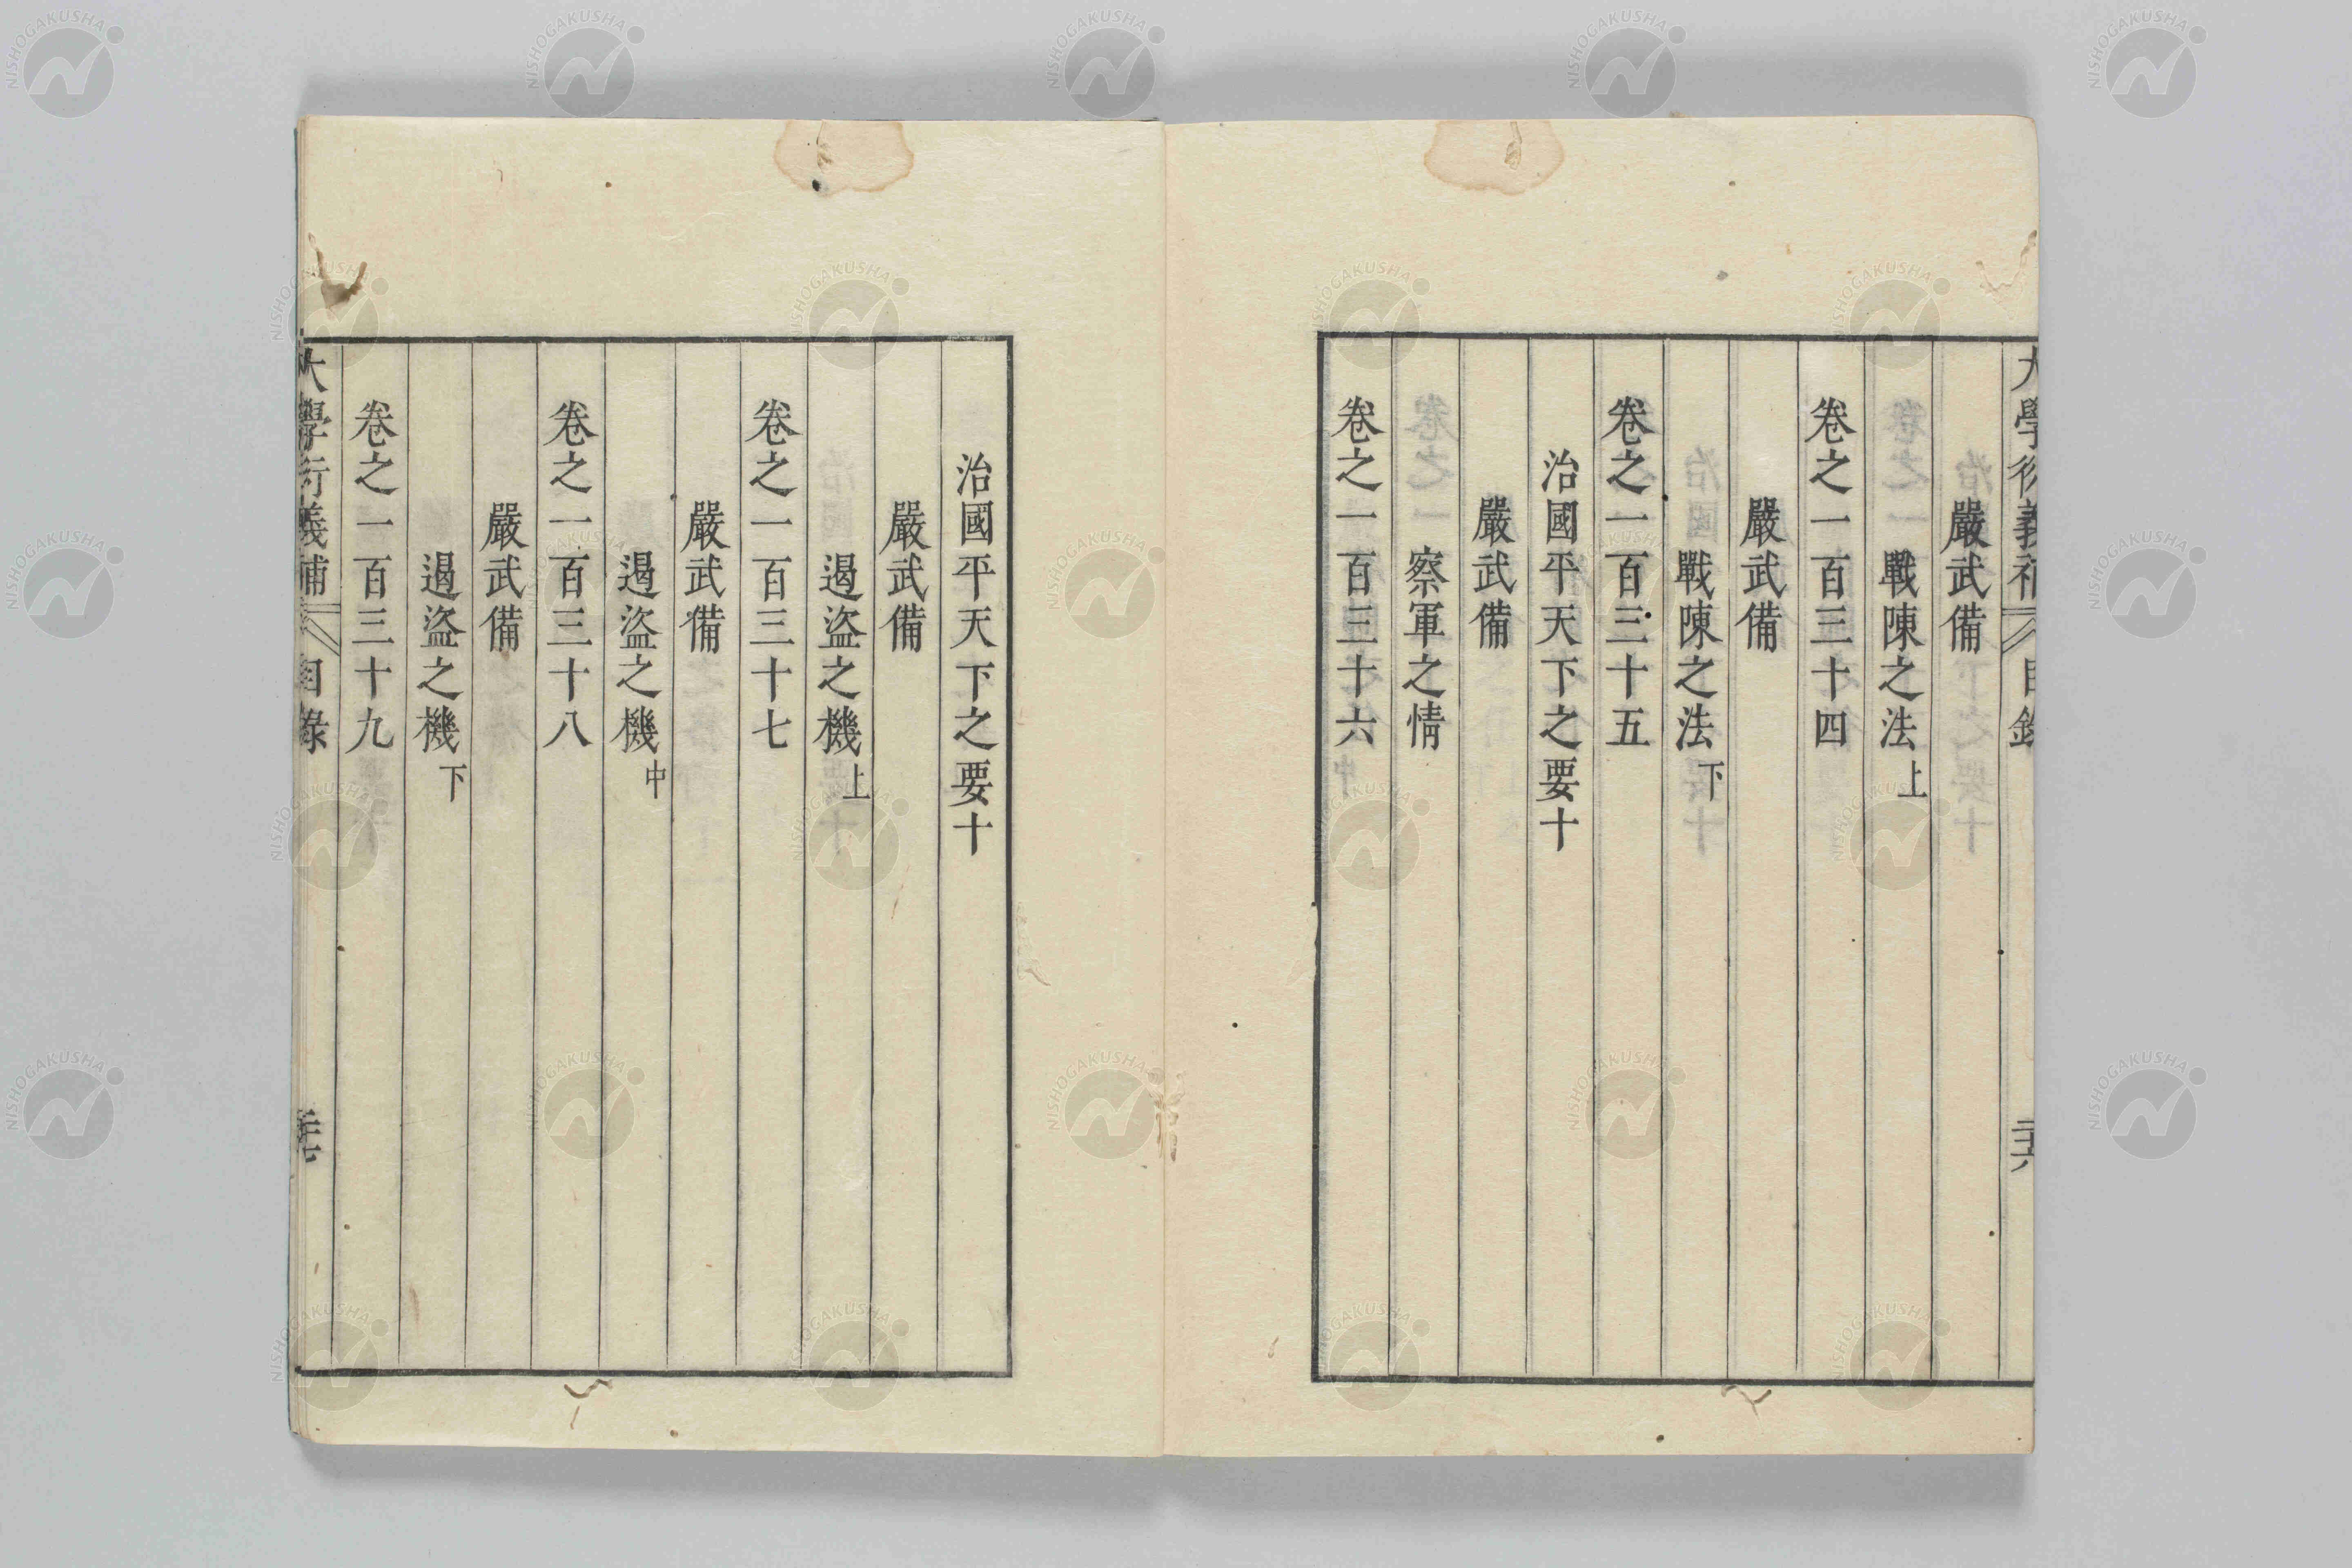 大學衍義補 目錄 二十六
嚴武備
戰陳之法上
卷之一百三十四
嚴武備
戰陳之法下
卷之一百三十五
治國平天下之要十
嚴武備
察軍之情
卷之一百三十六
治國平天下之要十
嚴武備
遏盜之機上
卷之一百三十七
嚴武備
遏盜之機中
卷之一百三十八
嚴武備
遏盜之機下
卷之一百三十九
大學衍義補 目錄
NISHOGAKUSHA